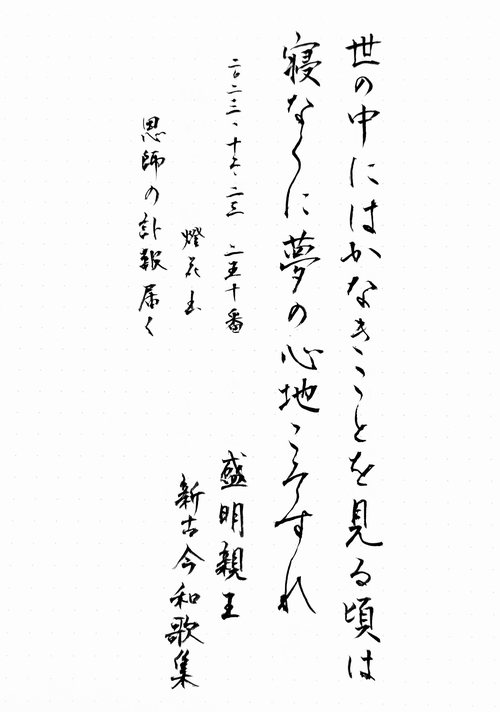 世の中にはかなきことを見る頃は
寝なくに夢の心地こそすれ
二〇二三、十二、二三　二五十番
盛明親王
燈花書
新古今和歌集
恩師の訃報届く